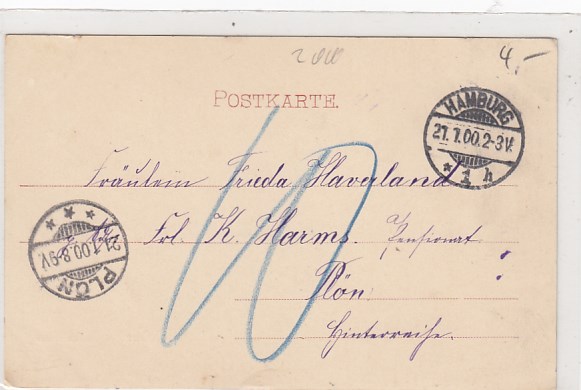 2,00
4,-
POSTKARTE.
HAMBURG
21.1.00.2-3V.
* 1 h
Fräulein Frieda Haverland
Frl. K. Harms. Pensionat
Plön
Hinterreihe.
10
21.1.00.8-9V.
PLÖN